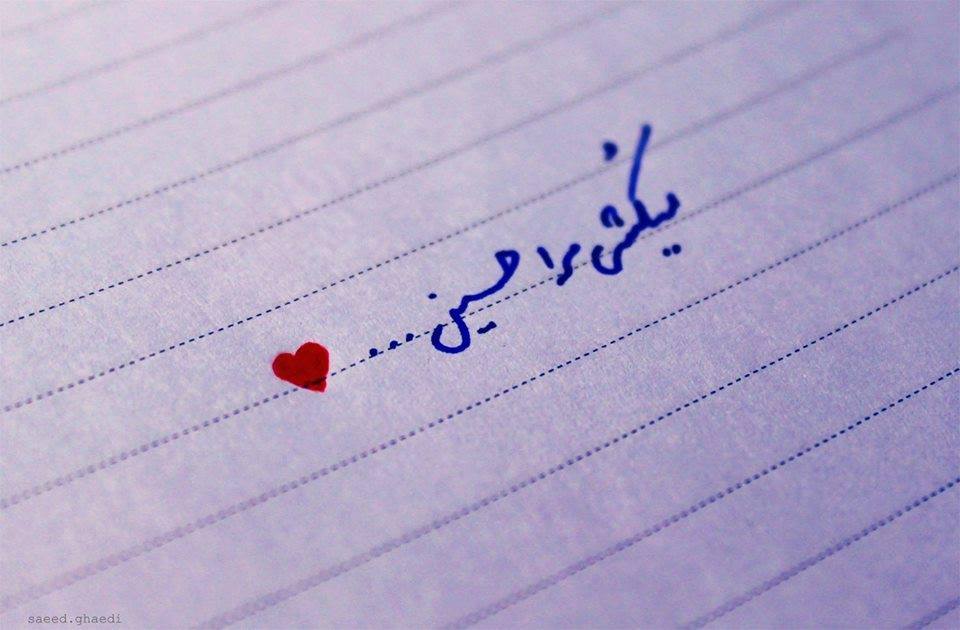 میکُشی مرا حسین ...
saeed.ghaedi